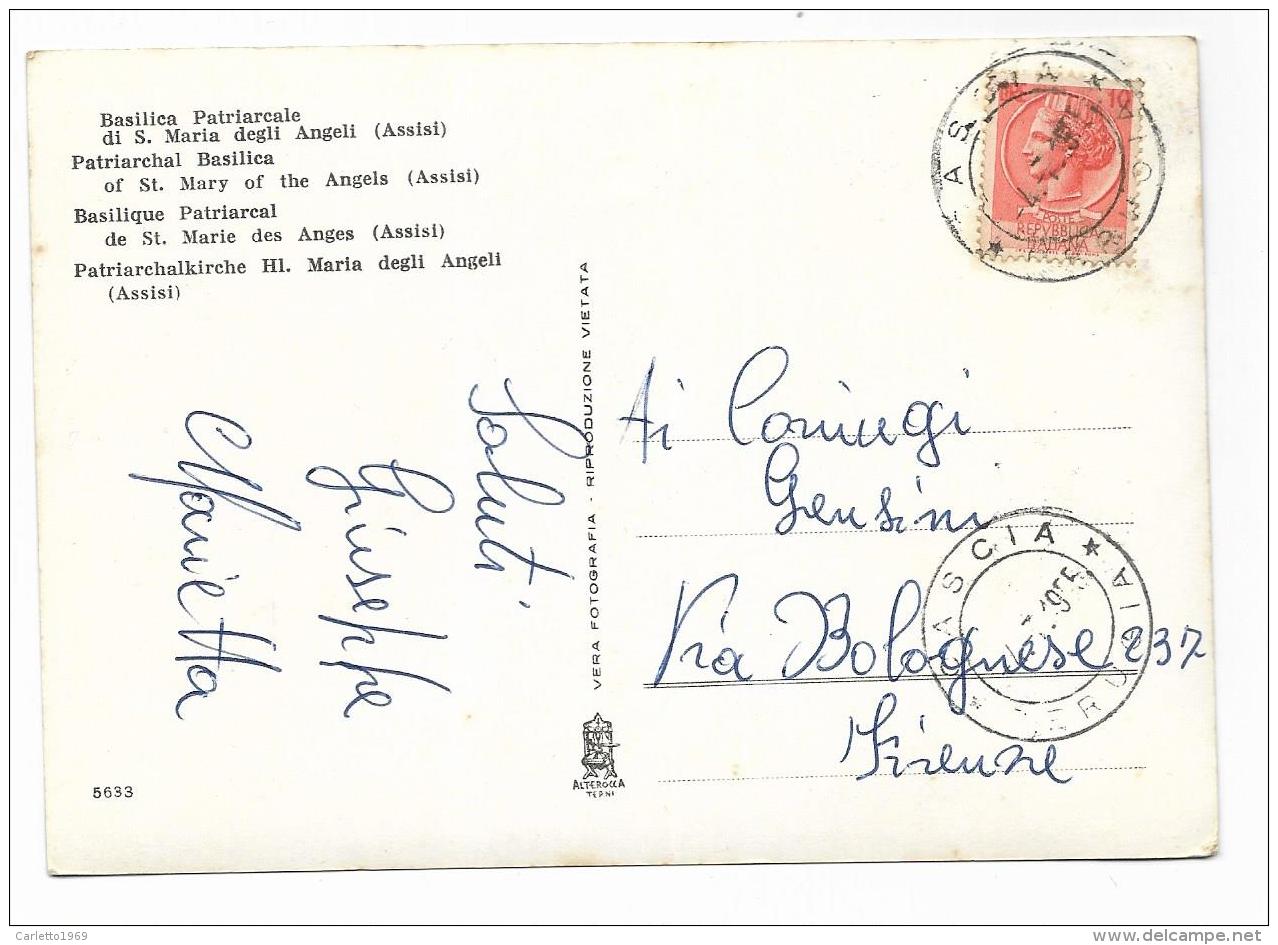 Basilica Patriarcale
di S. Maria degli Angeli (Assisi)
Patriarchal Basilica
of St. Mary of the Angels (Assisi)
Basilique Patriarcal
de St. Marie des Anges (Assisi)
Patriarchalkirche Hl. Maria degli Angeli
(Assisi)
Saluti
Giuseppe
Marietta
5633
VERA FOTOGRAFIA - RIPRODUZIONE VIETATA
ALTEROCCA
TERNI
10
POSTE
REPVBBLICA
ITALIANA
Ai Coniugi
Gensini
Via Bolognese 237
Firenze
CASCIA ★ PERUGIA ★
Carletto1969
delcampe.net